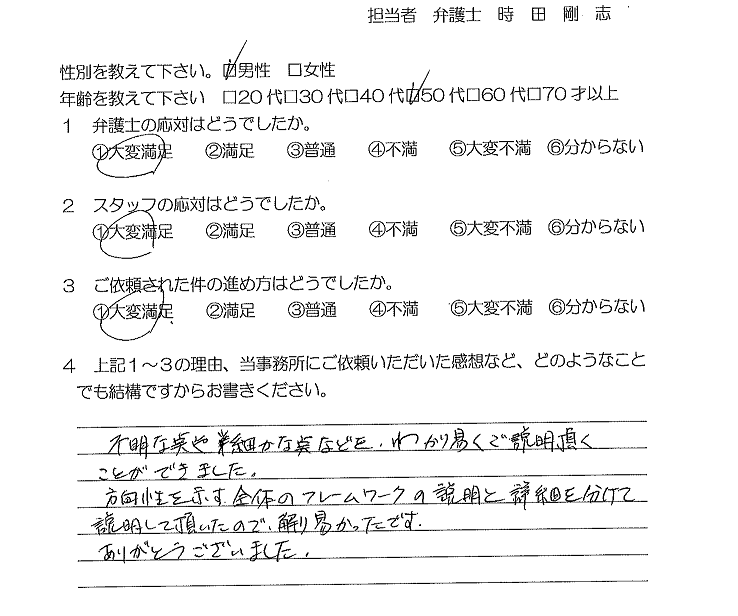 担当者 弁護士 時 田 剛 志
性別を教えて下さい。☑男性 □女性
年齢を教えて下さい □20代□30代□40代☑50代□60代□70才以上
1 弁護士の応対はどうでしたか。
①大変満足 ②満足 ③普通 ④不満 ⑤大変不満 ⑥分からない
2 スタッフの応対はどうでしたか。
①大変満足 ②満足 ③普通 ④不満 ⑤大変不満 ⑥分からない
3 ご依頼された件の進め方はどうでしたか。
①大変満足 ②満足 ③普通 ④不満 ⑤大変不満 ⑥分からない
4 上記1~3の理由、当事務所にご依頼いただいた感想など、どのようなこと
でも結構ですからお書きください。
不明な点や細かな点などを、わかり易くご説明頂く
ことができました。
方向性を示す全体のフレームワークの説明と詳細を分けて
説明して頂いたので、解り易かったです。
ありがとうございました。